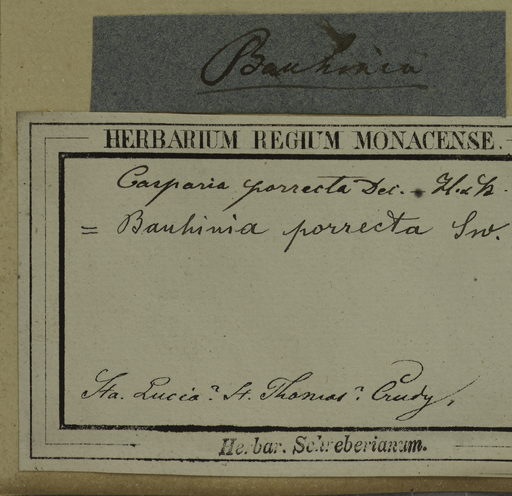 Bauhinia
HERBARIUM REGIUM MONACENSE.
Casparia porrecta Dec.
= Bauhinia porrecta Sw.
Sta. Lucia? St. Thomas? Crudy,
Herbar. Schreberianum.